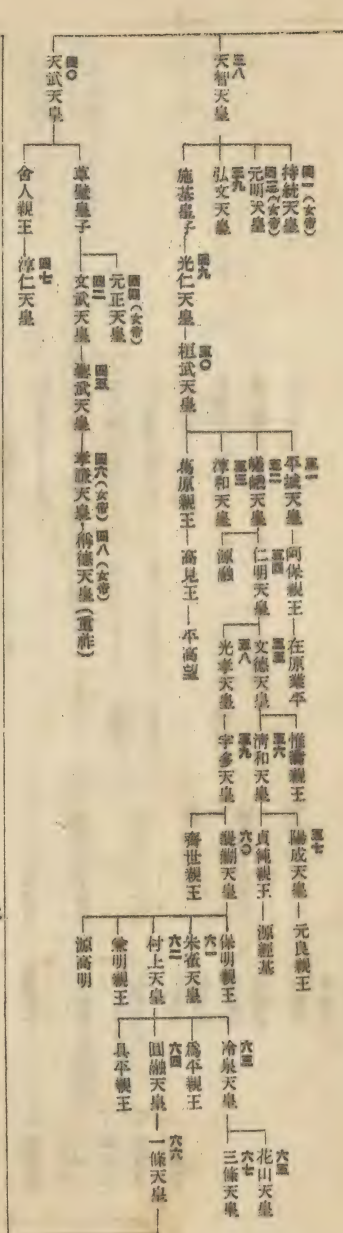 三八
天智天皇
四一(女帝)
持統天皇
四三(女帝)
元明天皇
三九
弘文天皇
施基皇子
四九
光仁天皇
五〇
桓武天皇
五一
平城天皇
阿保親王
在原業平
五二
嵯峨天皇
五四
仁明天皇
五五
文德天皇
惟喬親王
五六
清和天皇
五七
陽成天皇
元良親王
貞純親王
源經基
五八
光孝天皇
五九
宇多天皇
六〇
醍醐天皇
保明親王
六一
朱雀天皇
六二
村上天皇
六三
冷泉天皇
六五
花山天皇
六七
三條天皇
爲平親王
六四
圓融天皇
六六
一條天皇
具平親王
兼明親王
源高明
齊世親王
源融
五三
淳和天皇
葛原親王
高見王
平高望
四〇
天武天皇
草壁皇子
四四(女帝)
元正天皇
四二
文武天皇
四五
聖武天皇
四六(女帝)
孝謙天皇
四八(女帝)
稱德天皇(重祚)
舍人親王
四七
淳仁天皇